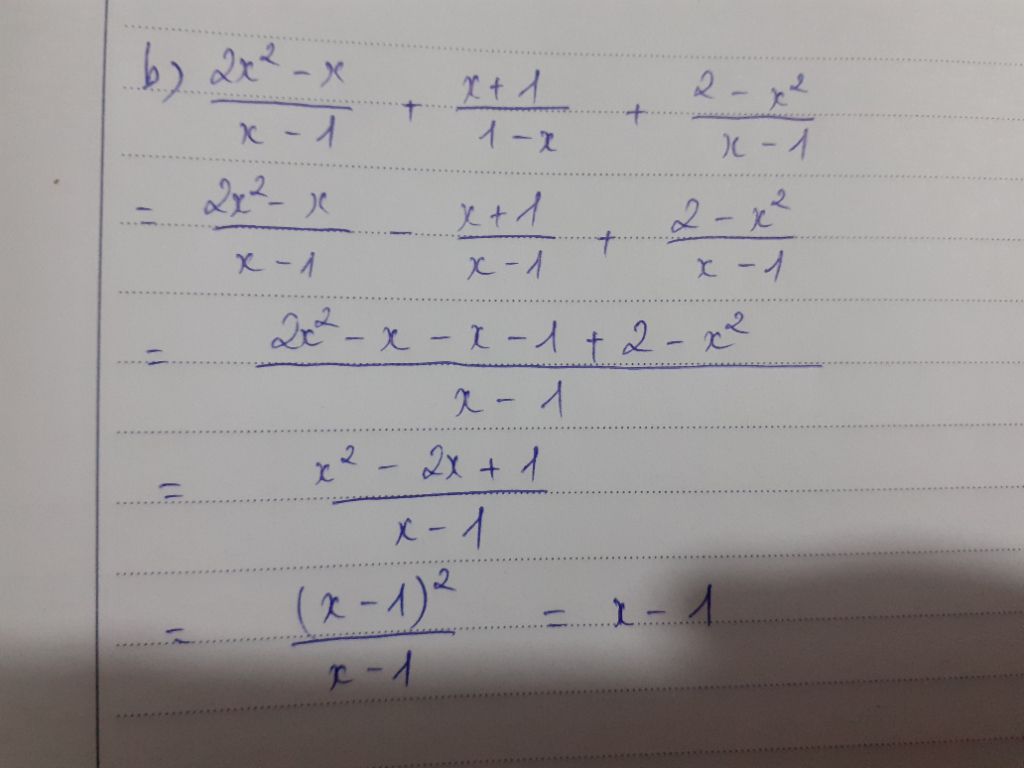 b) \frac{2x^2 - x}{x - 1} + \frac{x + 1}{1 - x} + \frac{2 - x^2}{x - 1}
= \frac{2x^2 - x}{x - 1} - \frac{x + 1}{x - 1} + \frac{2 - x^2}{x - 1}
= \frac{2x^2 - x - x - 1 + 2 - x^2}{x - 1}
= \frac{x^2 - 2x + 1}{x - 1}
= \frac{(x - 1)^2}{x - 1} = x - 1